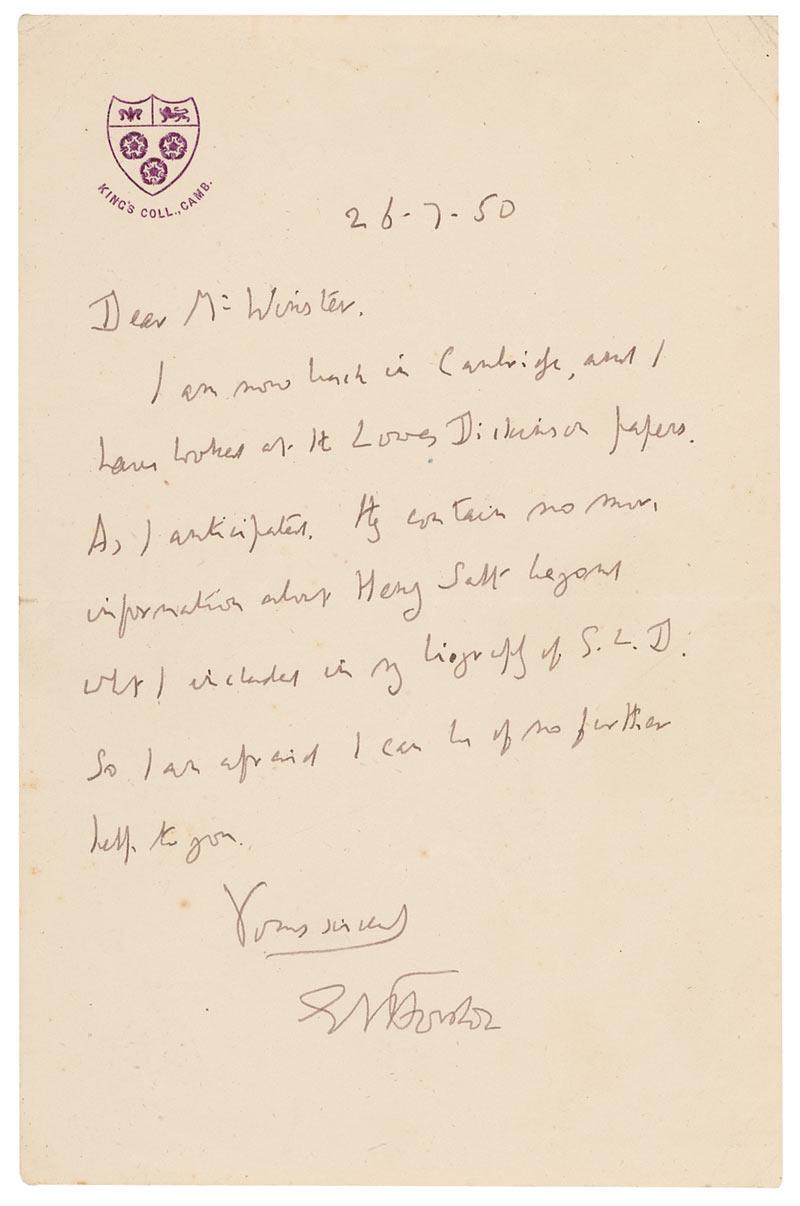 KING'S COLL., CAMB.
26-7-50
Dear Mr Winsten.
I am now back in Cambridge, and I
have looked at the Lowes Dickinson papers.
As I anticipated, they contain no more
information about Henry Salt beyond
what I included in my biography of G. L. D.
So I am afraid I can be of no further
help to you.
Yours sincerely
EM Forster